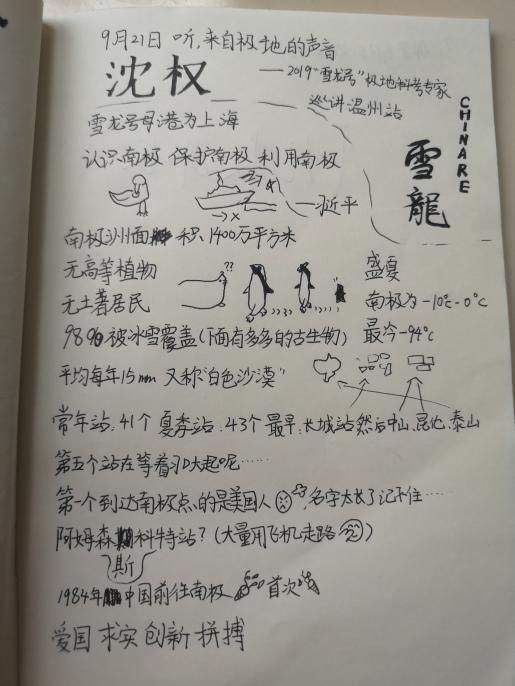 9月21日 听,来自极地的声音
沈权
——2019"雪龙号"极地科考专家
巡讲温州站
CHINARE
雪龍
雪龙号母港为上海
认识南极 保护南极 利用南极
——习近平
南极洲面积 1400万平方米
无高等植物
无土著居民
??
盛夏
南极为-10℃-0℃
最冷-94℃
98%被冰雪覆盖(下面有多多的古生物)
平均每年15mm 又称"白色沙漠"
常年站:41个 夏季站:43个 最早:长城站 然后中山、昆仑、泰山
第五个站在等着
第一个到达南极点的是美国人 ,名字太长了记不住……
阿姆森斯科特站?(大量用飞机走路)
1984年中国前往南极 首次
爱国 求实 创新 拼搏